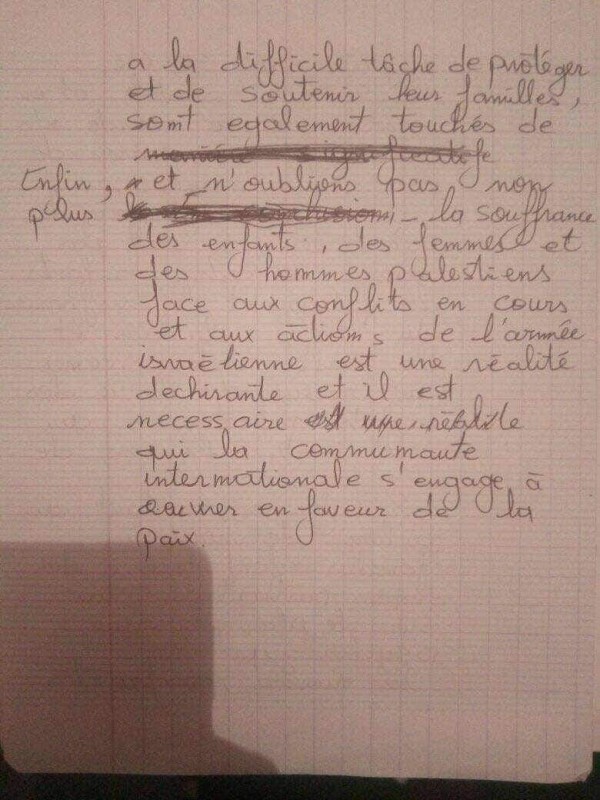 a la difficile tâche de protéger
et de soutenir leur familles,
sont egalement touchés de
manière significative
Enfin, et n'oublions pas non
plus la souffrance
des enfants, des femmes et
des hommes palestiens
face aux conflits en cours
et aux actions de l'armée
israëlienne est une réalité
dechirante et il est
necessaire est une réalité
qui la communaute
internationale s'engage à
œuvrer en faveur de la
paix.